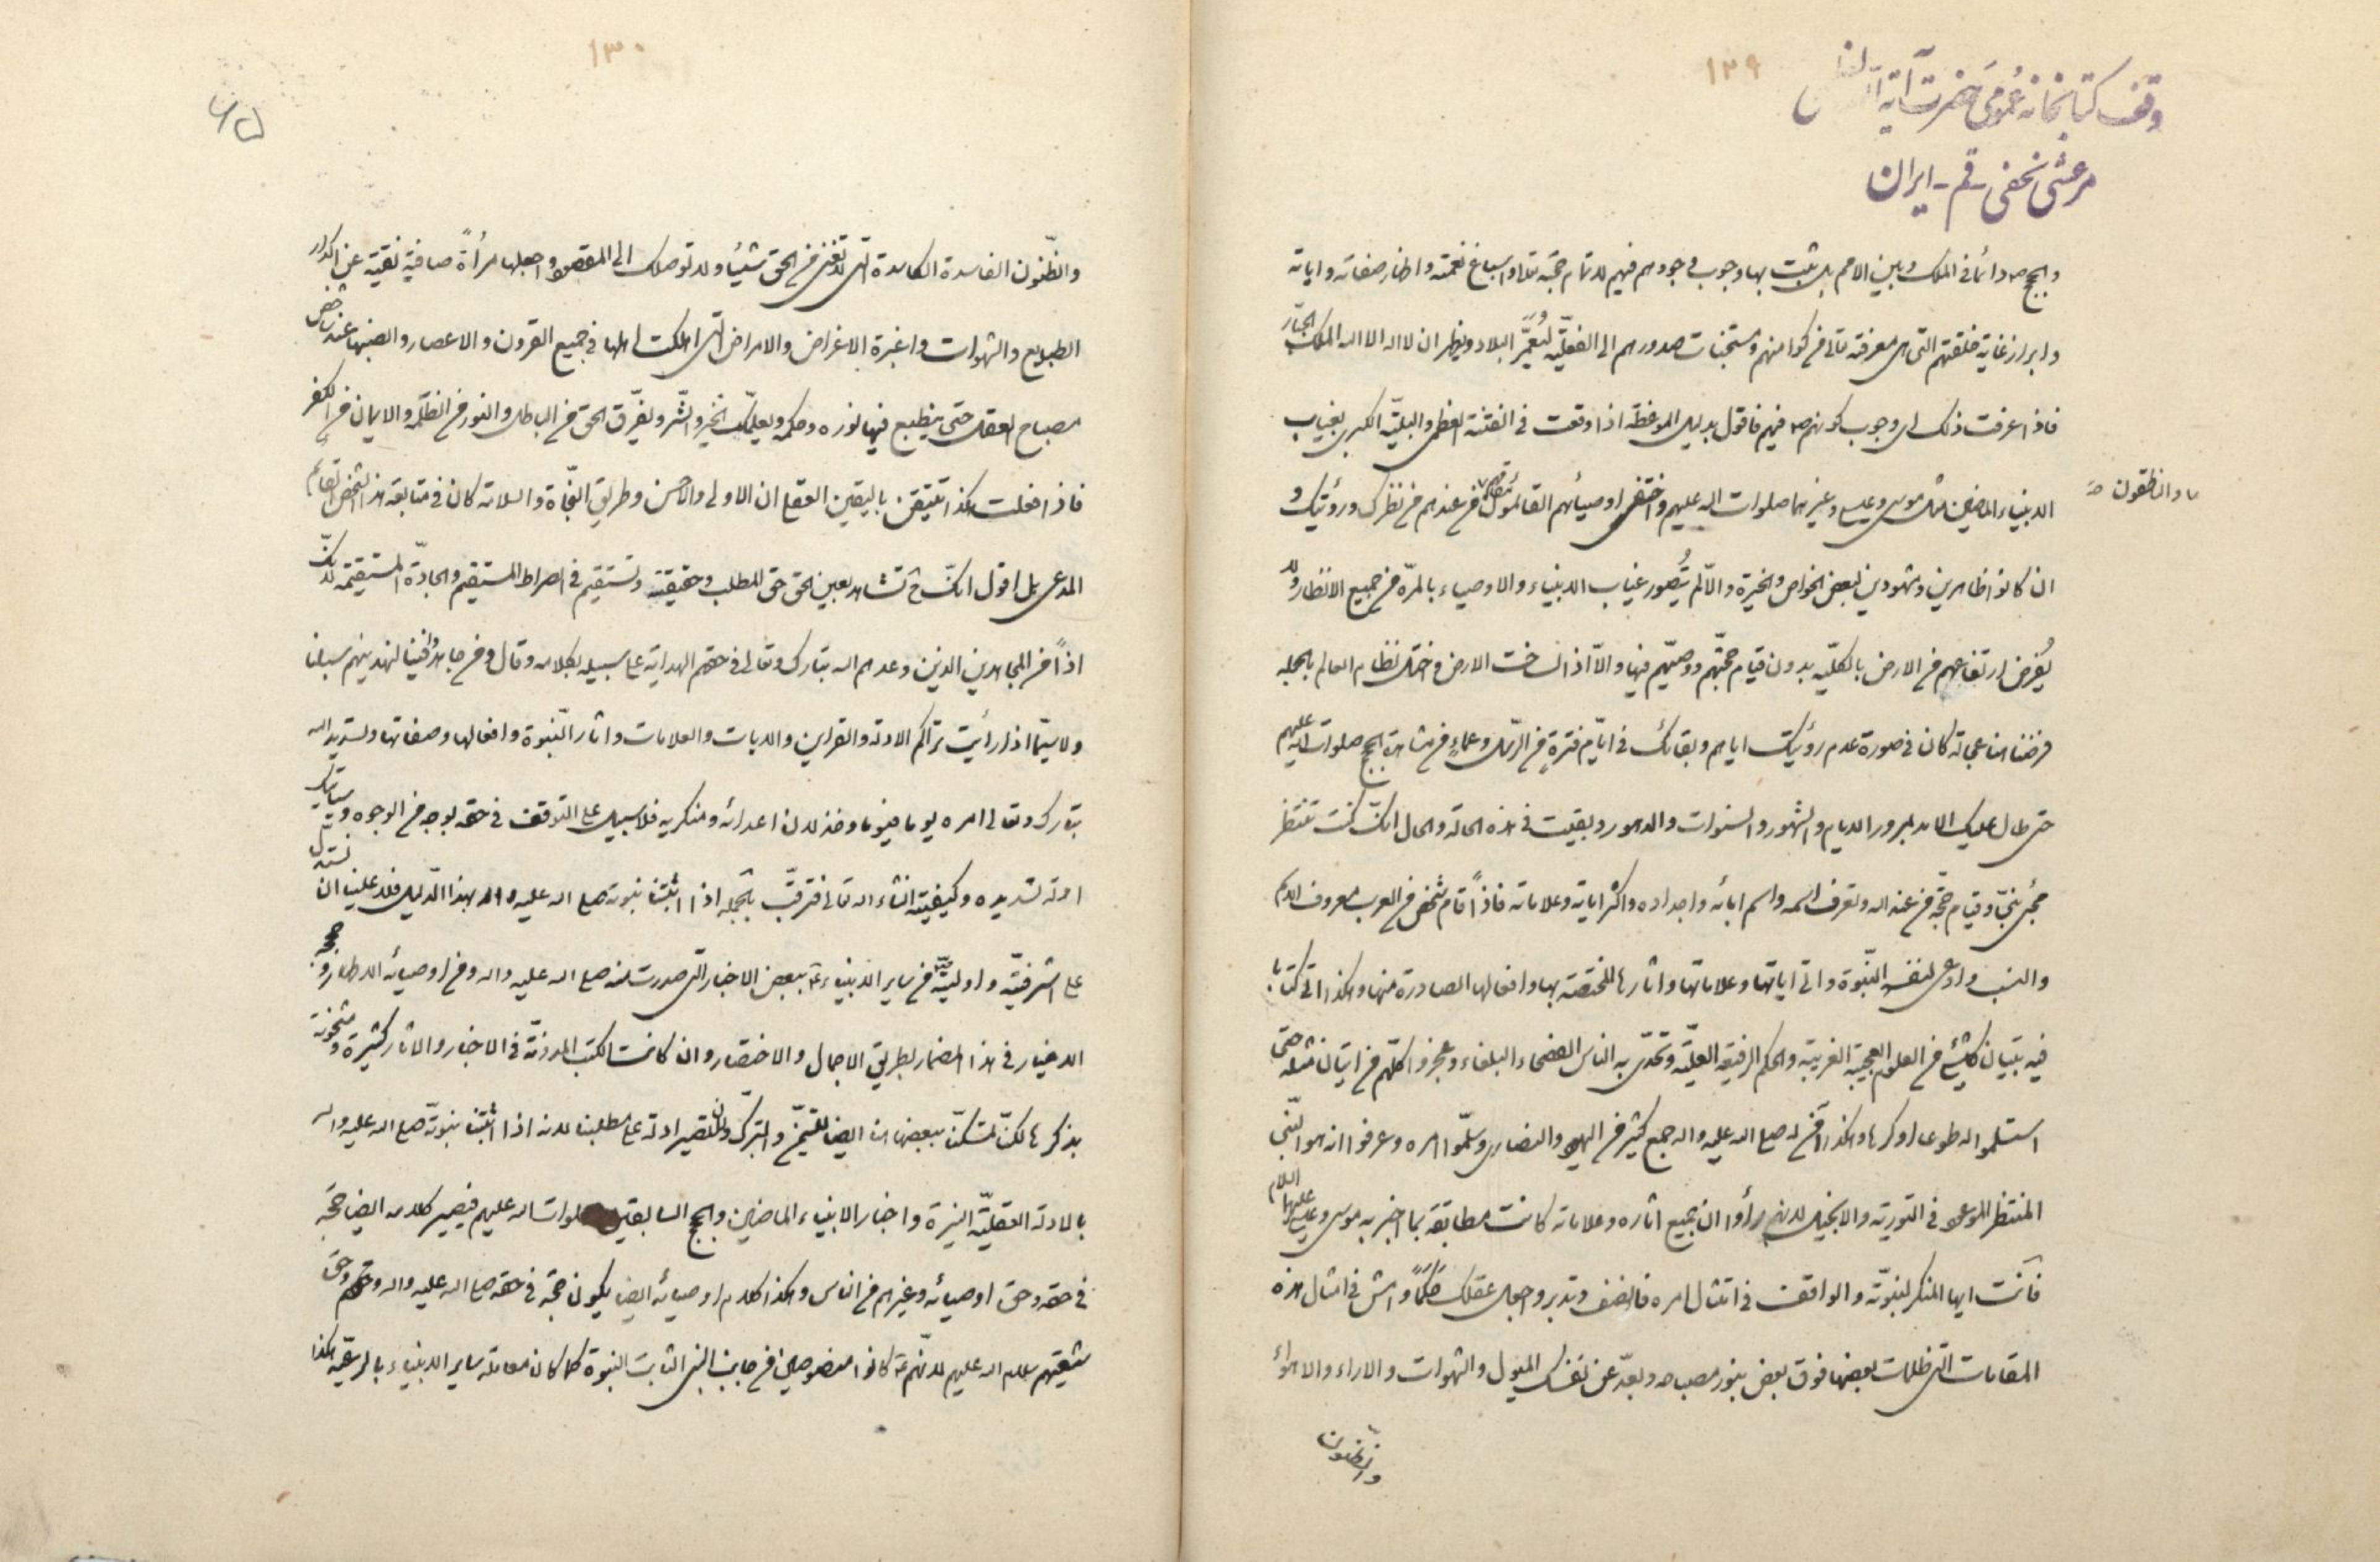 ١٢٩
وقف كتابخانه عمومى حضرت آية
مرعشى نجفى - قم - ايران
دائما فى الملك وبين الامم بل ثبت بها وجوب وجودهم فيهم لاتمام حجته واسباغ نعمته واظهار صفاته واياته
وابراز غاية خلقتهم التى هى معرفته تعالى من صدورهم الى الفعلية لتعمر البلاد ويظهر ان لا اله الا الله الملك الجبار
فاذا عرفت ذلك اى وجوب كونهم فيهم فاقول بدليل الموعظة اذا وقعت فى الفتنة العظمى والبلية الكبرى بغياب
الانبياء الماضين مثل موسى وعيسى وغيرهما صلوات الله عليهم واختفى اوصيائهم القائمون مقامهم من عندهم من نظرك ورؤيتك و
والناطقون
ان كانوا ظاهرين ومشهودين لبعض الخواص والخيرة والا لم يتصور غياب الانبياء والاوصياء بالمرة من جميع الانظار ولا
يفرض ارتفاعهم من الارض بالكلية بدون قيام حجتهم ووصيهم فيها والا اذا لساخت الارض واختل نظام العالم بالجملة
فرضنا هنا كان فى صورة عدم رؤيتك اياهم وبقائك فى ايام فترة من الرسل وعماء من مشاهدة الحجج صلوات الله عليهم
حتى طال عليك الامد بمرور الايام والشهور والسنوات والدهور وبقيت فى هذه الحالة والحال انك كنت تنتظر
مجئ نبى وقيام حجة من عند الله وتعرف اسمه واسم ابائه واجداده واكثر اياته وعلاماته فاذا قام شخص من العرب معروف الاسم
والنسب وادعى لنفسه النبوة واتى اياتها وعلاماتها واثارها المختصة بها وافعالها الصادرة منها وهكذا اتى كتابا
فيه تبيان كل شئ من العلوم العجيبة الغريبة والحكم الرفيعة العلية وتحدى به الناس الفصحاء البلغاء وعجزوا كلهم من اتيان مثله حتى
استسلموا له طوعا او كرها وهكذا آمن له صلى الله عليه واله جمع كثير من اليهود والنصارى وسلموا امره وعرفوا انه هو النبى
المنتظر الموعود فى التورية والانجيل لانهم رأوا ان جميع اثاره وعلاماته كانت مطابقة بما اخبر به موسى وعيسى عليهما السلام
فانت ايها المنكر لنبوته والواقف فى امتثال امره فانصف وتدبر واجعل عقلك حكما وامش فى امثال هذه
المقامات التى ظلمات بعضها فوق بعض بنور مصباحه وبعد عن نفسك الميول والشهوات والاراء والاهواء
والظنون
١٣٠
٦٥
والظنون الفاسدة الكاسدة التى لا تغنى من الحق شيئا ولا توصلك الى المقصود واجعلها مرأة صافية نقية عن اكدار
الطبايع والشهوات واغبرة الاغراض والامراض التى اهلكت اهلها فى جميع القرون والاعصار والصبها عند
مصباح العقل حتى ينطبع فيها نوره وحكمه ويعلمك الخير والشر ويفرق الحق من الباطل والنور من الظلمة والايمان من الكفر
فاذا فعلت هكذا تتيقن باليقين القطع ان الاولى والاحسن وطريق النجاة والسلامة كان فى متابعة هذا الشخص القائم
المدعى بل اقول انك ح تشاهد بعين الحق حق المطلب وحقيقته وتستقيم فى الصراط المستقيم والجادة المستقيمة لانك
اذا من المجاهدين الذين وعدهم الله تبارك وتعالى فى حقهم الهداية على سبيله بكلامه وقال ومن جاهدوا فينا لنهدينهم سبلنا
ولا سيما اذا رأيت تراكم الادلة والقراين والايات والعلامات واثار النبوة وافعالها وصفاتها وتسديد الله
تبارك وتعالى امره يوما فيوما وخذلان اعدائه ومنكريه فلا سبيل على التوقف فى حقه بوجه من الوجوه وسيأتيك
ادلة تسديده وكيفيته انشاء الله تعالى فترقب بالجملة اذا اثبتنا نبوته صلى الله عليه واله بهذا الدليل فلا علينا ان نستدل
على اشرفيته واوليته من ساير الانبياء ببعض الاخبار التى صدرت منه صلى الله عليه واله ومن اوصيائه الاطهار و
الاخيار فى هذا المضمار بطريق الاجمال والاختصار وان كانت الكتب المدونة فى الاخبار والاثار كثيرة ومشحونة
بذكرها لكن نتمسك ببعضها هنا ايضا للتيمن والتبرك ولان تصير ادلة على مطلبنا لانه اذا اثبتنا نبوته صلى الله عليه واله
بالادلة العقلية النيرة واخبار الانبياء الماضين والحجج السابقين صلوات الله عليهم فيصير كلامه ايضا حجة
فى حقه وحق اوصيائه وغيرهم من الناس وهكذا كلام اوصيائه ايضا يكون حجة فى حقه صلى الله عليه واله وحقهم وحق
شيعتهم سلام الله عليهم لانهم كانوا منصوصين من جانب النبى الثابت النبوة كما كان معاملة ساير الانبياء بالرعية هكذا